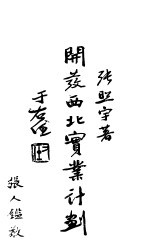 張照宇著
開發西北實業計劃
于右任
張人鑑敬